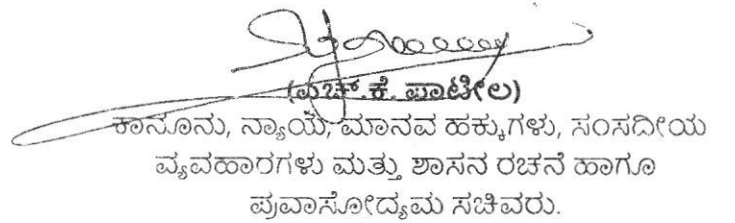 (ಎಚ್.ಕೆ. ಪಾಟೀಲ)
ಕಾನೂನು, ನ್ಯಾಯ, ಮಾನವ ಹಕ್ಕುಗಳು, ಸಂಸದೀಯ
ವ್ಯವಹಾರಗಳು ಮತ್ತು ಶಾಸನ ರಚನೆ ಹಾಗೂ
ಪ್ರವಾಸೋದ್ಯಮ ಸಚಿವರು.